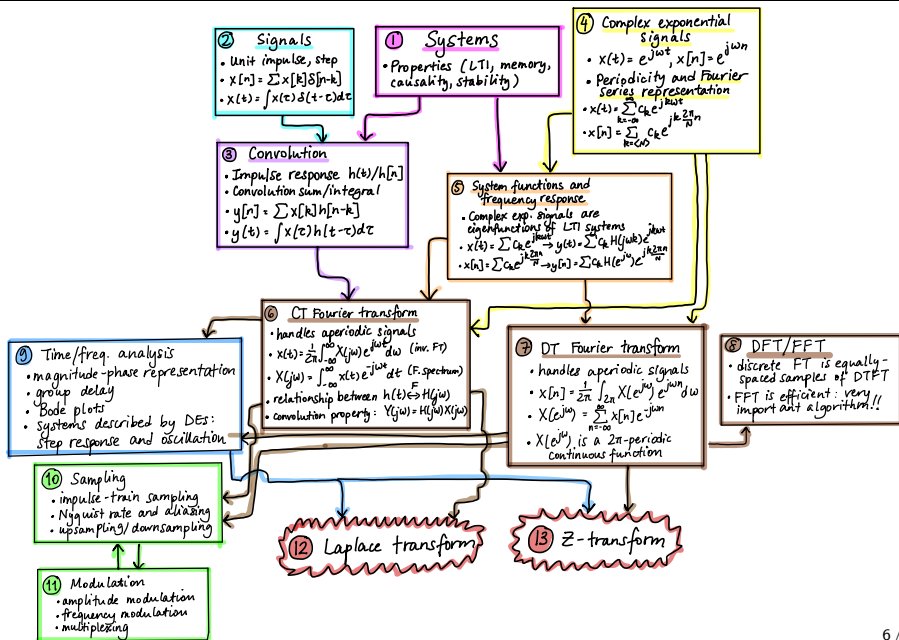 ② Signals
• Unit impulse, step
• x[n] = ∑x[k]δ[n-k]
• x(t) = ∫x(τ)δ(t-τ)dτ
① Systems
• Properties (LTI, memory,
causality, stability)
④ Complex exponential
signals
• x(t) = e^{jωt}, x[n] = e^{jωn}
• Periodicity and Fourier
Series representation
• x(t) = ∑_{k=-∞}^{∞} c_k e^{jkωt}
• x[n] = ∑_{k=<N>} c_k e^{jk 2π/N n}
③ Convolution
• Impulse response h(t)/h[n]
• Convolution sum/integral
• y[n] = ∑x[k]h[n-k]
• y(t) = ∫x(τ)h(t-τ)dτ
⑤ System functions and
frequency response
• Complex exp. signals are
eigenfunctions of LTI systems
• x(t) = ∑c_k e^{jkωt} → y(t) = ∑c_k H(jωk)e^{jkωt}
• x[n] = ∑c_k e^{jk 2πn/N} → y[n] = ∑c_k H(e^{jω})e^{jk 2πn/N}
⑥ CT Fourier transform
• handles aperiodic signals
• x(t) = 1/2π ∫_{-∞}^{∞} X(jω)e^{jωt}dω (inv. FT)
• X(jω) = ∫_{-∞}^{∞} x(t)e^{-jωt}dt (F. spectrum)
• relationship between h(t) F↔ H(jω)
• convolution property: Y(jω) = H(jω)X(jω)
⑦ DT Fourier transform
• handles aperiodic signals
• x[n] = 1/2π ∫_{2π} X(e^{jω})e^{jωn}dω
• X(e^{jω}) = ∑_{n=-∞}^{∞} x[n]e^{-jωn}
• X(e^{jω}) is a 2π-periodic
continuous function
⑧ DFT/FFT
• discrete FT is equally-
spaced samples of DTFT
• FFT is efficient: very
important algorithm!!
⑨ Time/freq. analysis
• magnitude-phase representation
• group delay
• Bode plots
• Systems described by DEs:
step response and oscillation
⑩ Sampling
• impulse-train sampling
• Nyquist rate and aliasing
• upsampling/downsampling
⑪ Modulation
• amplitude modulation
• frequency modulation
• multiplexing
⑫ Laplace transform
⑬ Z-transform
6 /